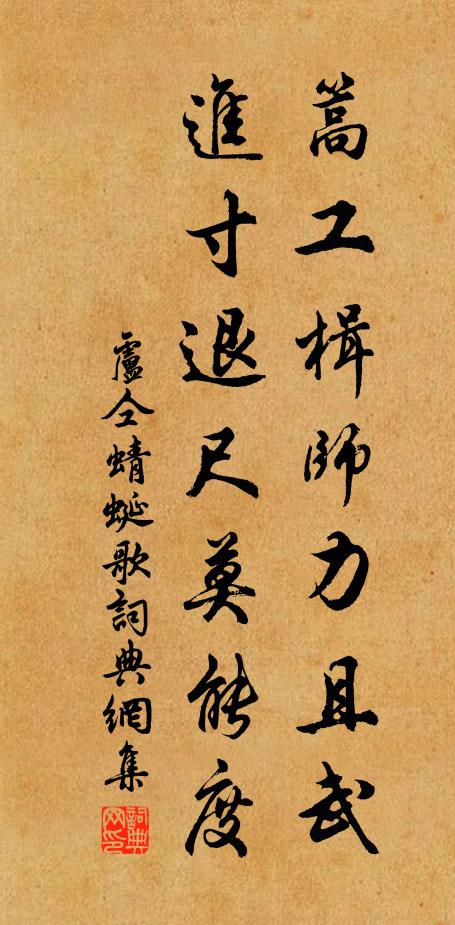 篙工楫師力且武
進寸退尺莫能度
盧仝蜻蜓歌詞典網集
詞典网印